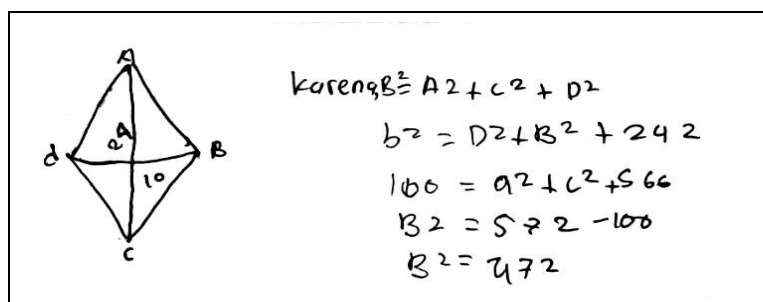 A
24
d
B
10
C
karena B² = A2 + C² + D2
b2 = D2 + B² + 242
100 = a2 + c² + 566
B2 = 572 - 100
B2 = 472